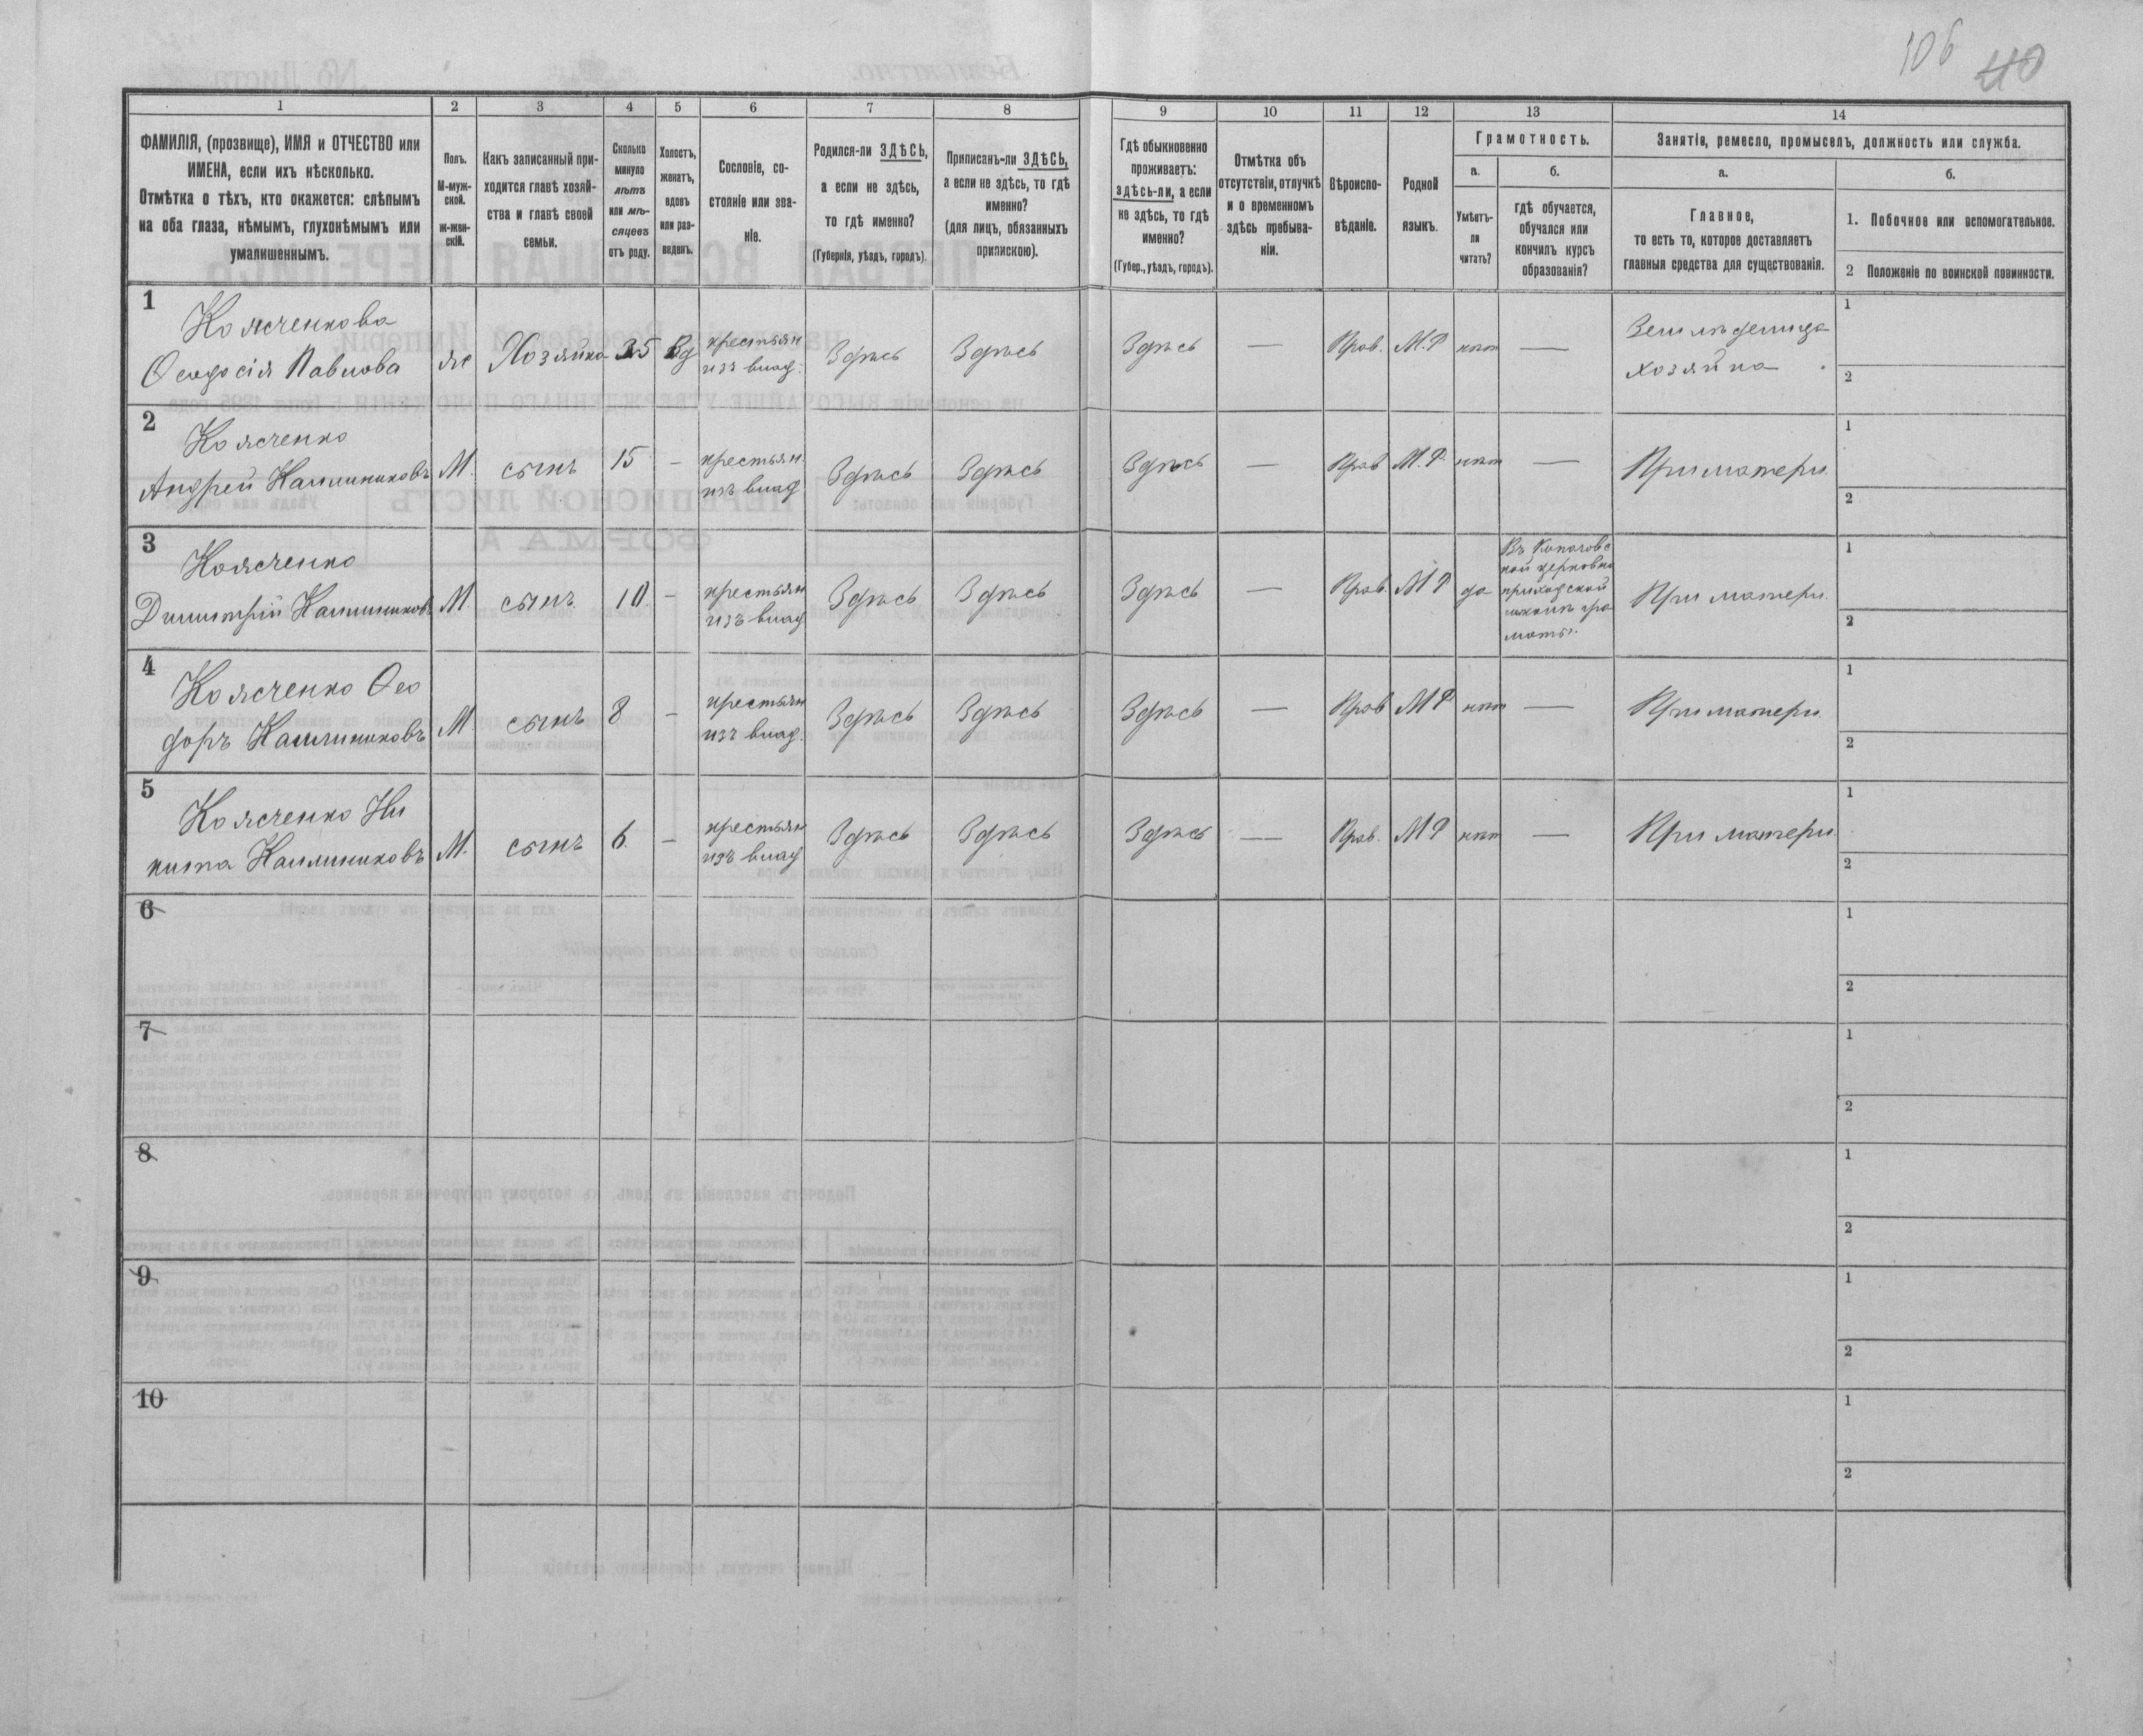 106 40
1 2 3 4 5 6 7 8 9 10 11 12 13 14
ФАМИЛІЯ, (прозвище), ИМЯ и ОТЧЕСТВО или
ИМЕНА, если ихъ нѣсколько.
Отмѣтка о тѣхъ, кто окажется: слѣпымъ
на оба глаза, нѣмымъ, глухонѣмымъ или
умалишеннымъ.
Полъ.
М-муж-
ской.
ж-жен-
скій.
Какъ записанный при-
ходится главѣ хозяй-
ства и главѣ своей
семьи.
Сколько
минуло
лѣтъ
или мѣ-
сяцевъ
отъ роду.
Холостъ,
женатъ,
вдовъ
или раз-
веденъ.
Сословіе, со-
стояніе или зва-
ніе.
Родился-ли ЗДѢСЬ,
а если не здѣсь,
то гдѣ именно?
(Губернія, уѣздъ, городъ).
Приписанъ-ли ЗДѢСЬ,
а если не здѣсь, то гдѣ
именно?
(для лицъ, обязанныхъ
припискою).
Гдѣ обыкновенно
проживаетъ:
здѣсь-ли, а если
не здѣсь, то гдѣ
именно?
(Губер., уѣздъ, городъ).
Отмѣтка объ
отсутствіи, отлучкѣ
и о временномъ
здѣсь пребыва-
ніи.
Вѣроиспо-
вѣданіе.
Родной
языкъ.
Грамотность.
а.
Умѣетъ-
ли
читать?
б.
гдѣ обучается,
обучался или
кончилъ курсъ
образованія?
Занятіе, ремесло, промыселъ, должность или служба.
а.
Главное,
то есть то, которое доставляетъ
главныя средства для существованія.
б.
1. Побочное или вспомогательное.
2 Положеніе по воинской повинности.
1
Коясченкова
Ѳеодосія Павлова
ж
Хозяйка
35
Вд
крестьян
изъ влад.
Здѣсь
Здѣсь
Здѣсь
—
Прав.
М.Р
нѣт
—
Земледелица
хозяйка
1
2
2
Коясченко
Андрей Каллиниковъ
М.
сынъ
15
-
крестьян.
изъ влад
Здѣсь
Здѣсь
Здѣсь
—
Прав
М.Р.
нѣт
—
При матери
1
2
3
Коясченко
Димитрій Каллиниковъ
М.
сынъ.
10.
-
крестьян
изъ влад
Здѣсь
Здѣсь
Здѣсь
—
Прав.
М Р
да
Въ Копачовс
кой церковно
приходской
школѣ гра
моты.
При матери.
1
2
4
Коясченко Ѳео
доръ Каллиниковъ
М
сынъ
8
-
крестьян
изъ влад.
Здѣсь
Здѣсь
Здѣсь
—
Прав
М Р.
нѣт
—
При матери.
1
2
5
Коясченко Ни
кита Каллиниковъ
М.
сынъ
6.
-
крестьян
изъ влад
Здѣсь
Здѣсь
Здѣсь
—
Прав.
М Р
нѣт
—
При матери.
1
2
6
1
2
7
1
2
8
1
2
9
1
2
10
1
2